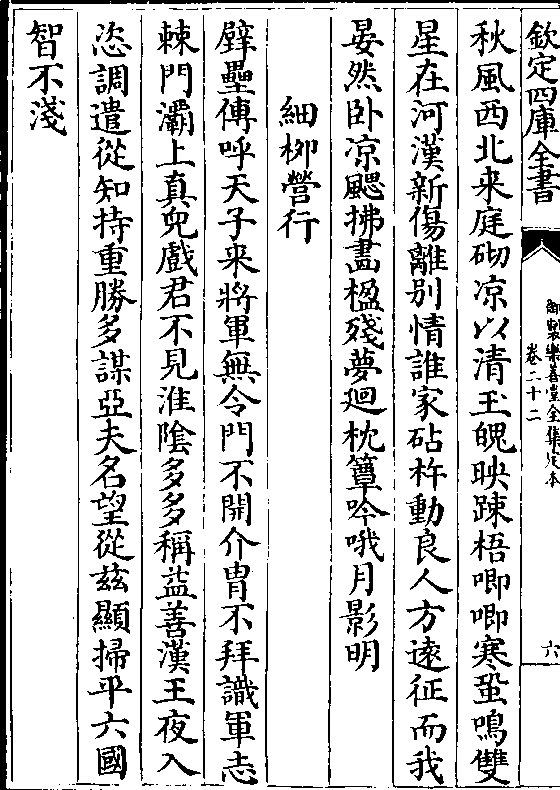 欽定四庫全書
御製樂善堂全集定本
卷二十二
六
秋風西北来庭砌凉以清玉魄映踈梧唧唧寒蛩鳴雙
星在河漢新傷離别情誰家砧杵動良人方遠征而我
晏然卧凉颸拂畵楹殘夢廻枕簟吟哦月影明
細栁營行
壁壘傳呼天子来將軍無令門不開介胄不拜識軍志
棘門灞上真兒戲君不見淮隂多多稱益善漢王夜入
恣調遣從知持重勝多謀亞夫名望從兹顯掃平六國
智不淺